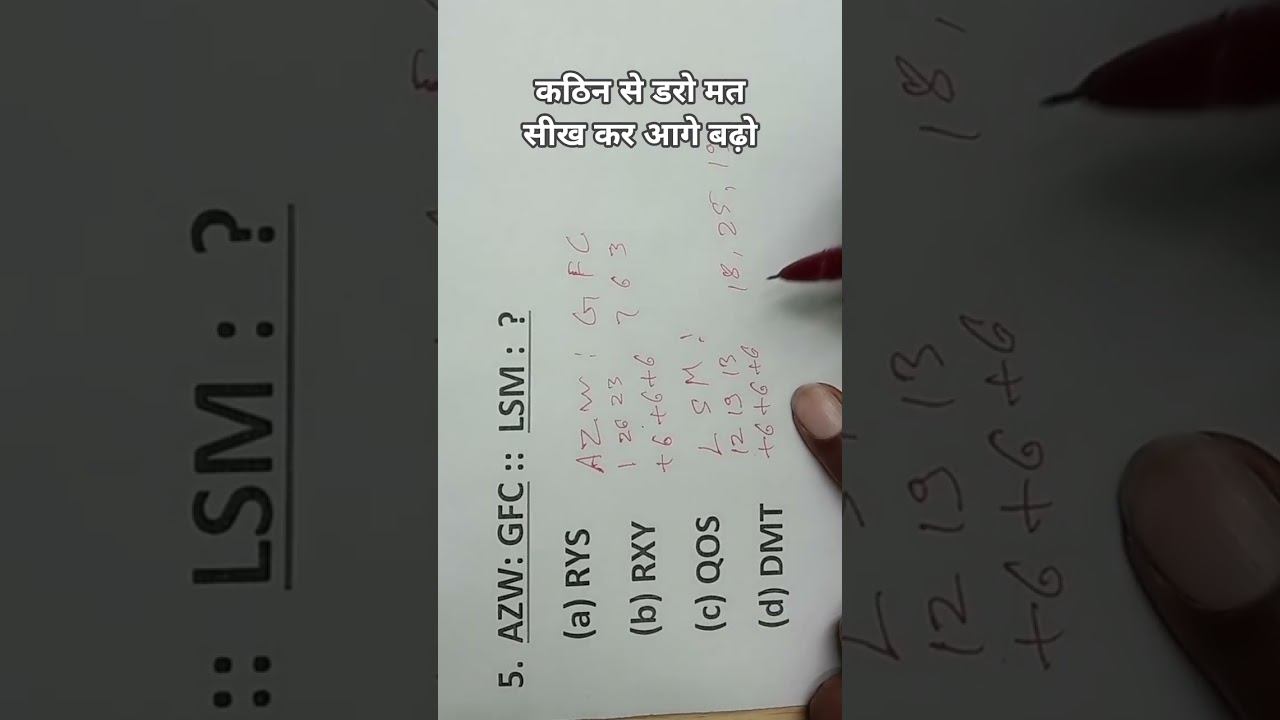 कठिन से डरो मत
सीख कर आगे बढ़ो
5. AZW: GFC :: LSM : ?
(a) RYS
(b) RXY
(c) QOS
(d) DMT
AZW : GFC
1 26 23 7 6 3
+6 +6 +6
LSM :
12 19 13 18, 25, 19
+6 +6 +6
:: LSM : ?
18,
12 19 13
+6 +6 +6